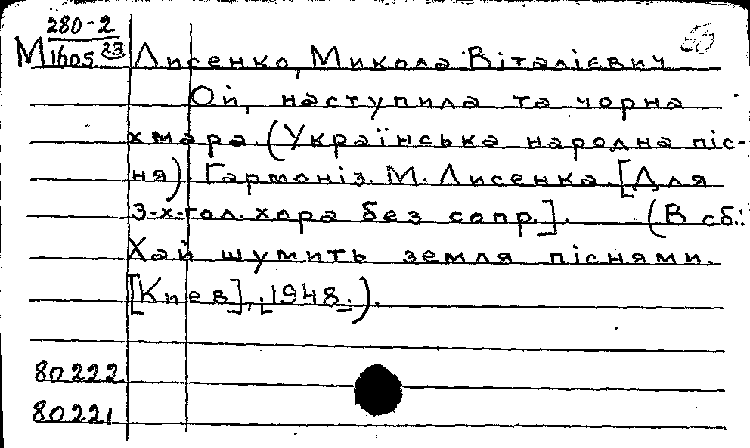 280-2
М1605 23 Лисенко, Микола Віталієвич
Ой, наступила та чорна
хмара. (Українська народна піс-
ня). Гармоніз. М. Лисенка. [Для
3-х-гол. хора без сопр.]. (В сб.:
Хай шумить земля піснями.
[Киев], [1948.).
80222
80221